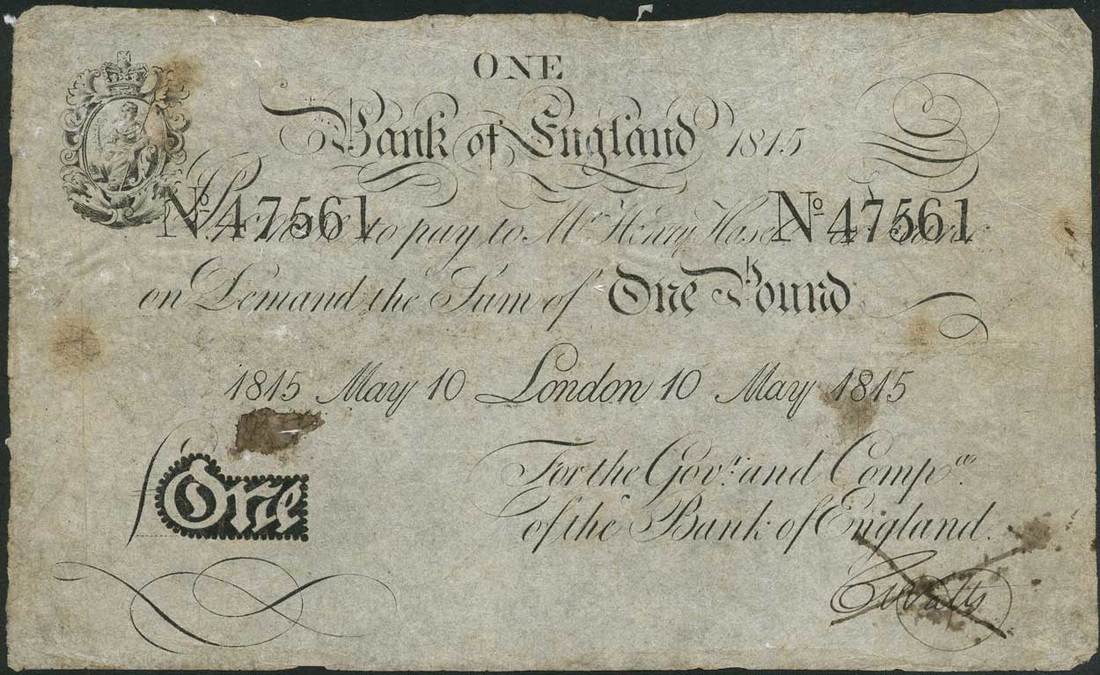 ONE
Bank of England 1815
No 47561 to pay to Mr. Henry Hase No 47561
on Demand the Sum of One Pound
1815 May 10 London 10 May 1815
For the Govr. and Compa.
One
of the Bank of England.